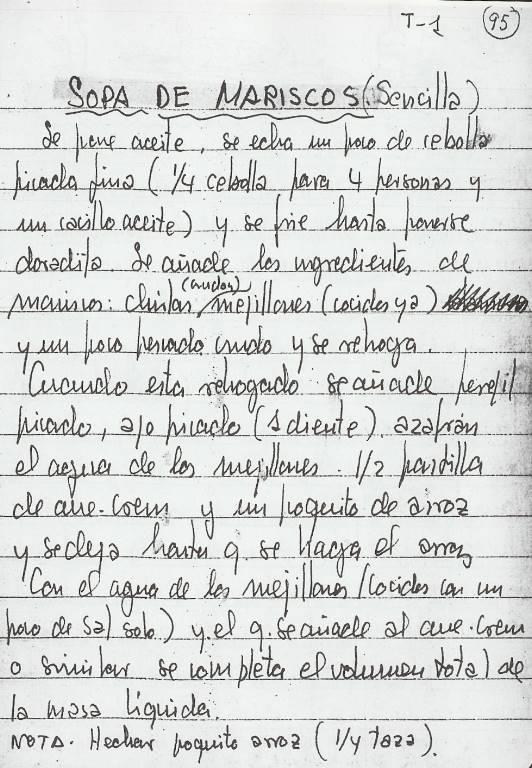 T-1 95
SOPA DE MARISCOS (Sencilla)
Se pone aceite, se echa un poco de cebolla
picada fina (1/4 cebolla para 4 personas y
un cacillo aceite) y se frie hasta ponerse
doradita. Se añade los ingredientes de
(crudas)
mariscos: chirlas, mejillones (cocidos ya)
y un poco pescado crudo y se rehoga.
Cuando esta rehogado se añade perejil
picado, ajo picado (1 diente), azafrán
el agua de los mejillones. 1/2 pastilla
de ave-crem y un poquito de arroz
y se deja hasta q. se haga el arroz
Con el agua de los mejillones (cocidos con un
poco de sal solo) y el q. se añade al ave-crem
o similar se completa el volumen total de
la masa líquida.
NOTA. Hechar poquito arroz (1/4 taza).